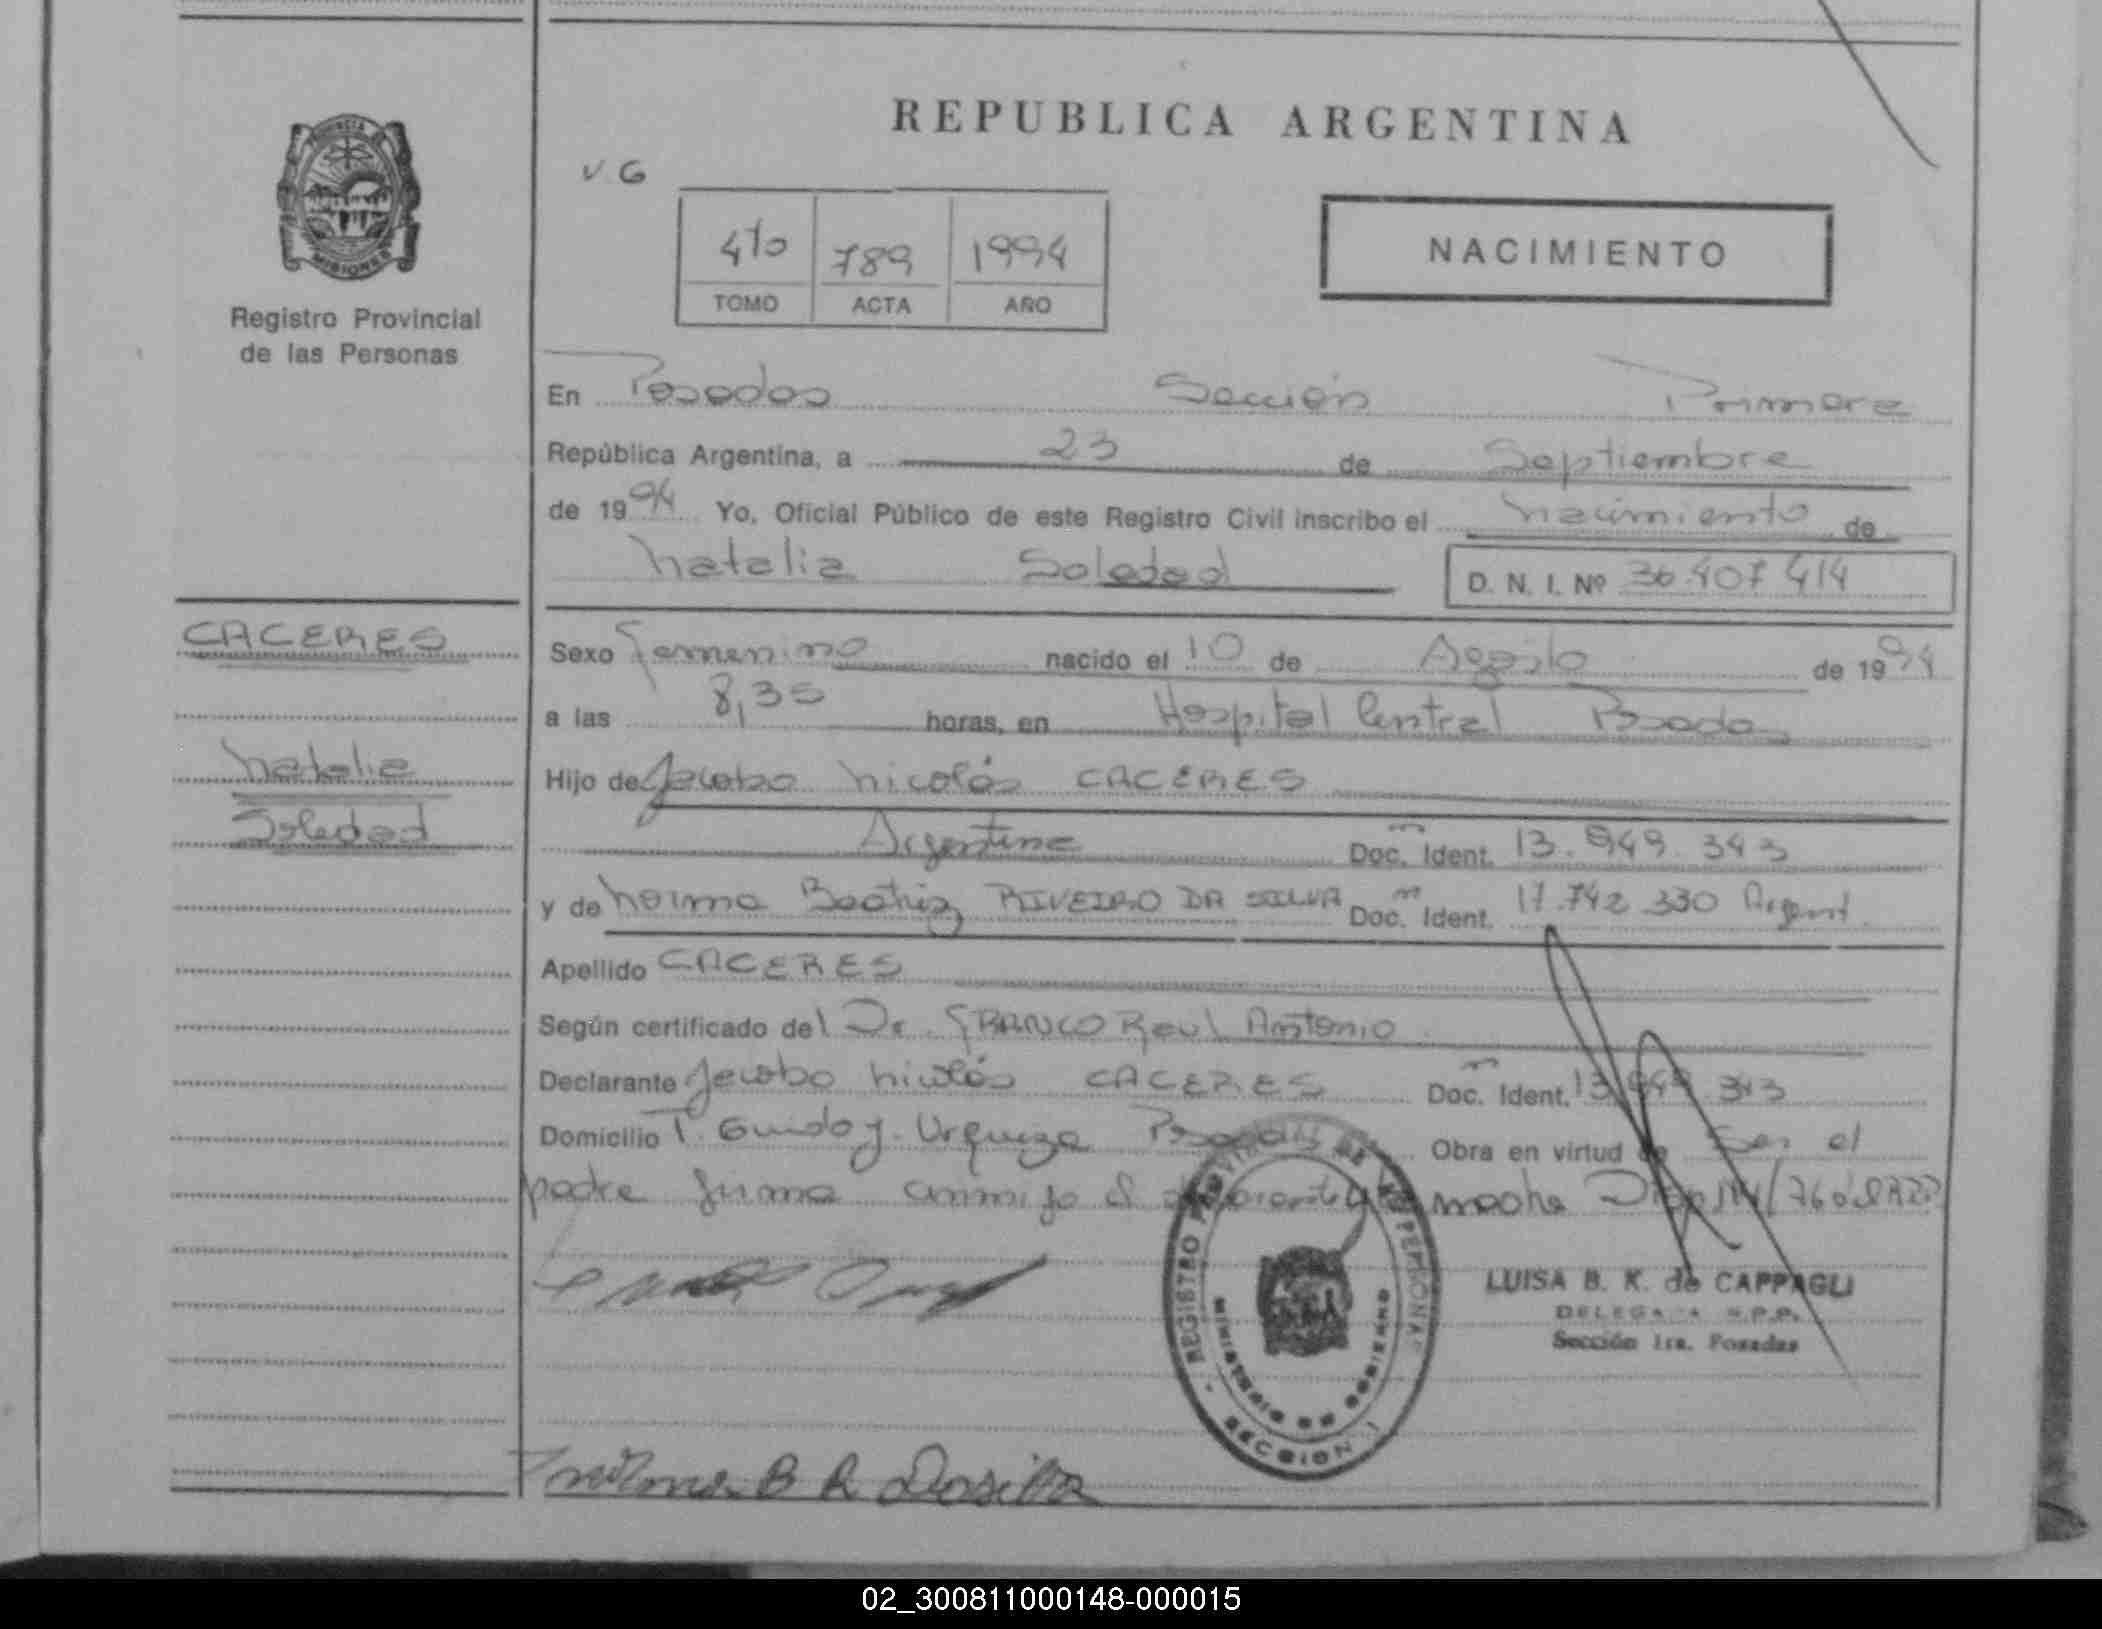 REPUBLICA ARGENTINA
V. G
4to 789 1994
TOMO ACTA AÑO
NACIMIENTO
PROVINCIA
MISIONES
Registro Provincial
de las Personas
En Posadas Sección Primera
República Argentina, a 23 de Septiembre
de 1994 Yo, Oficial Público de este Registro Civil inscribo el nacimiento de
Natalia Soledad D. N. I. Nº 36.407.414
CACERES
Natalia
Soledad
Sexo femenino nacido el 10 de Agosto de 1994
a las 8,35 horas, en Hospital Central Posadas
Hijo de Jacobo Nicolás CACERES
Argentina Doc. Ident. 13.949.343
y de Norma Beatriz RIVEIRO DA SILVA Doc. Ident. 17.742.330 Argent.
Apellido CACERES
Según certificado del Dr. FRANCO Raul Antonio
Declarante Jacobo Nicolás CACERES Doc. Ident. 13.949.343
Domicilio T. Guido y Urquiza Posadas Obra en virtud de Ser el
padre firma conmigo el declarante y la madre Disp
REGISTRO PROVINCIAL DE LAS PERSONAS
MINISTERIO DE GOBIERNO
SECCION 1
LUISA B. K. de CAPPAGLI
DELEGADA R.P.P.
Sección 1ra. Posadas
Norma B R Dasilva
02_300811000148-000015